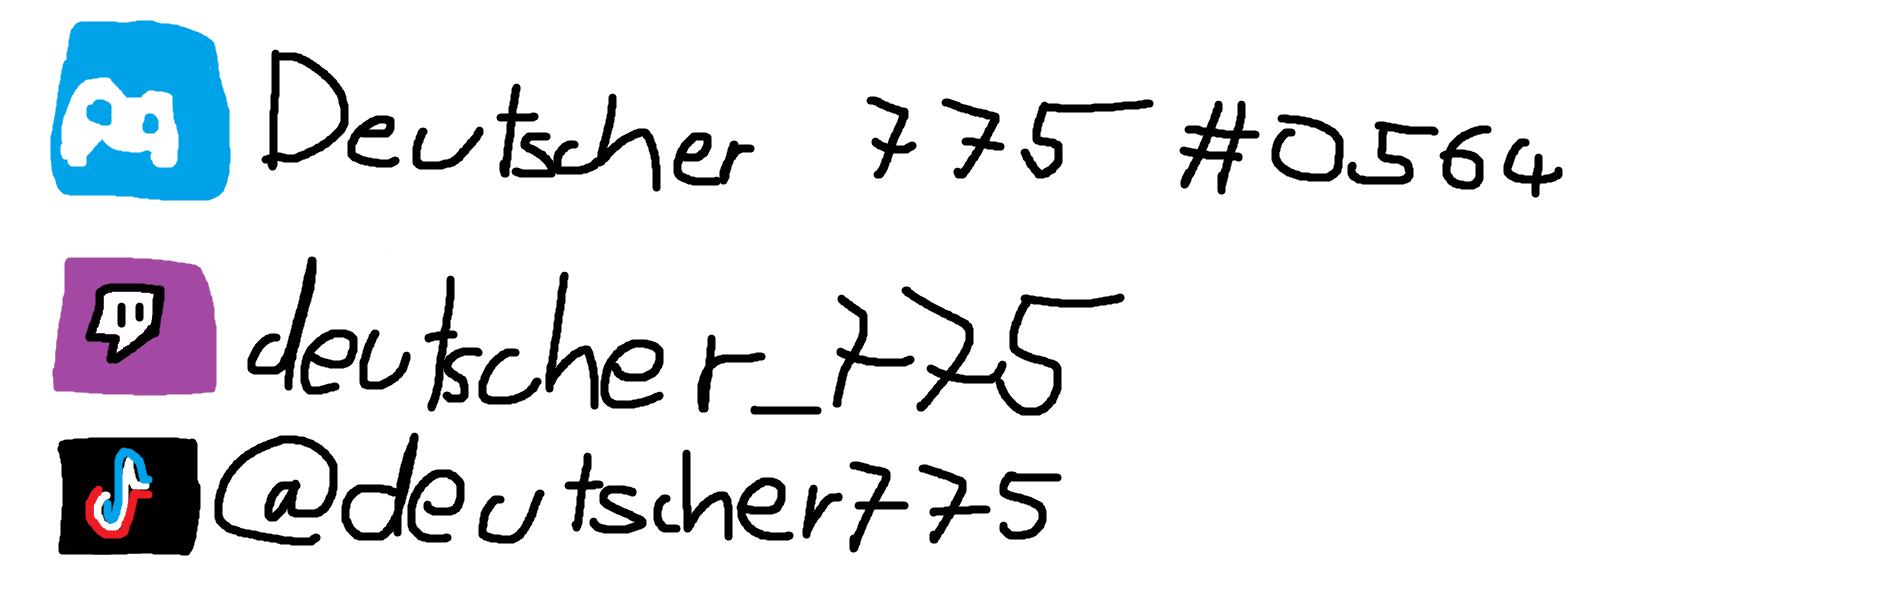 Deutscher 775 #0564
deutscher_775
@deutscher775